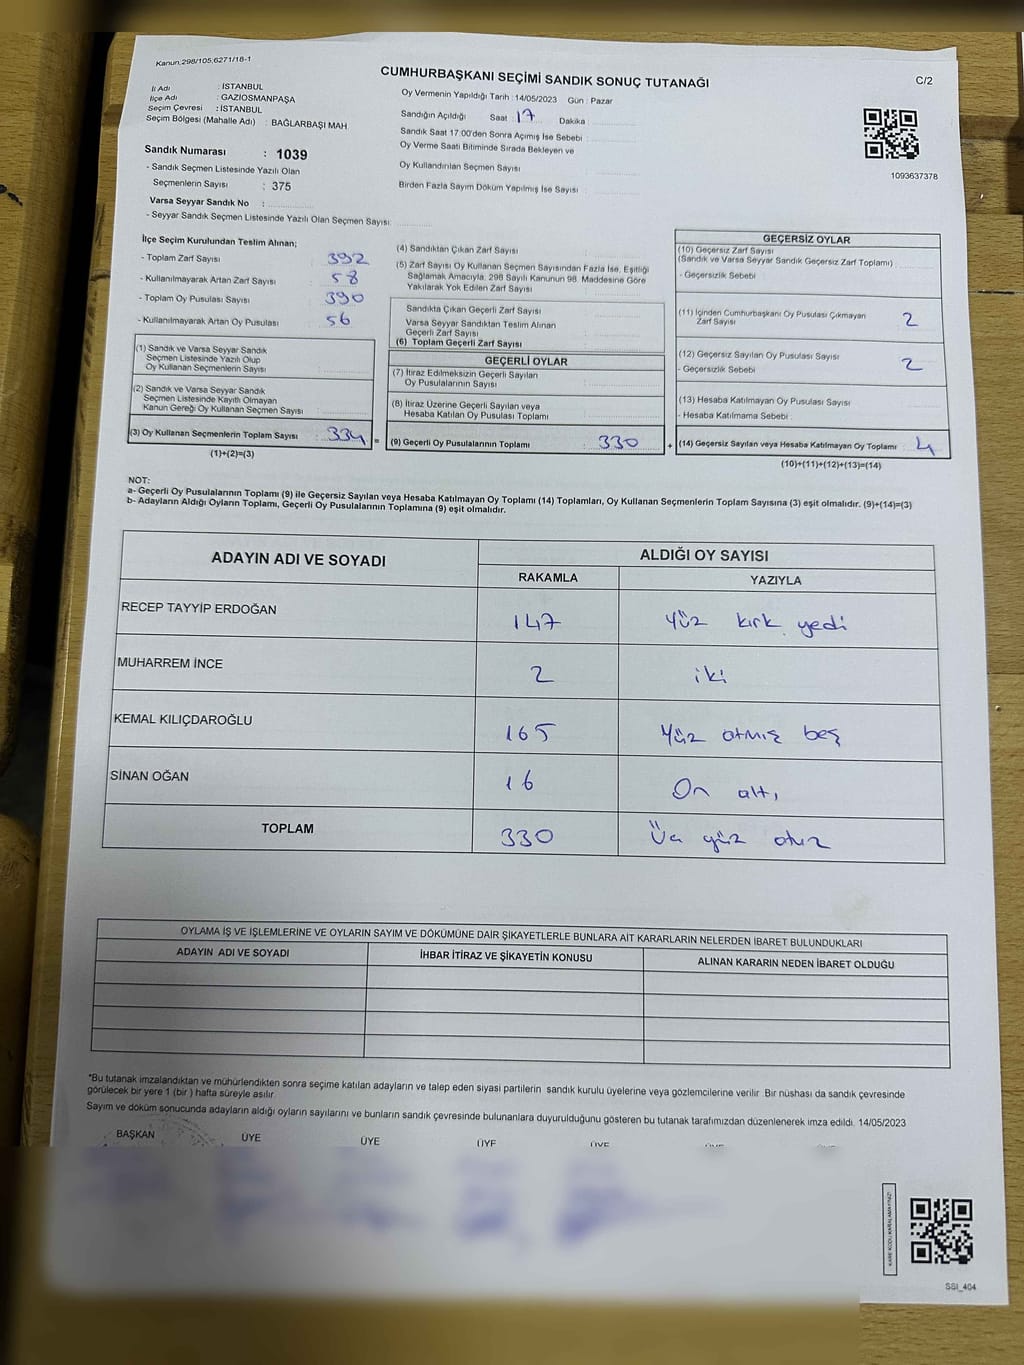 Kanun.298/105,6271/18-1
CUMHURBAŞKANI SEÇİMİ SANDIK SONUÇ TUTANAĞI
C/2
İl Adı : İSTANBUL
İlçe Adı : GAZİOSMANPAŞA
Seçim Çevresi : İSTANBUL
Seçim Bölgesi (Mahalle Adı) : BAĞLARBAŞI MAH
Oy Vermenin Yapıldığı Tarih : 14/05/2023 Gün : Pazar
Sandığın Açıldığı Saat : 17 Dakika :
Sandık Saat 17:00'den Sonra Açımış İse Sebebi :
Oy Verme Saati Bitiminde Sırada Bekleyen ve
Oy Kullandırılan Seçmen Sayısı :
Birden Fazla Sayım Döküm Yapılmış İse Sayısı :
1093637378
Sandık Numarası : 1039
- Sandık Seçmen Listesinde Yazılı Olan
Seçmenlerin Sayısı : 375
Varsa Seyyar Sandık No :
- Seyyar Sandık Seçmen Listesinde Yazılı Olan Seçmen Sayısı:
İlçe Seçim Kurulundan Teslim Alınan;
- Toplam Zarf Sayısı : 392
- Kullanılmayarak Artan Zarf Sayısı : 58
- Toplam Oy Pusulası Sayısı : 390
- Kullanılmayarak Artan Oy Pusulası : 56
(1) Sandık ve Varsa Seyyar Sandık
Seçmen Listesinde Yazılı Olup
Oy Kullanan Seçmenlerin Sayısı :
(2) Sandık ve Varsa Seyyar Sandık
Seçmen Listesinde Kayıtlı Olmayan
Kanun Gereği Oy Kullanan Seçmen Sayısı :
(3) Oy Kullanan Seçmenlerin Toplam Sayısı : 334 =
(1)+(2)=(3)
(4) Sandıktan Çıkan Zarf Sayısı :
(5) Zarf Sayısı Oy Kullanan Seçmen Sayısından Fazla İse, Eşitliği
Sağlamak Amacıyla, 298 Sayılı Kanunun 98. Maddesine Göre
Yakılarak Yok Edilen Zarf Sayısı :
Sandıkta Çıkan Geçerli Zarf Sayısı :
Varsa Seyyar Sandıktan Teslim Alınan
Geçerli Zarf Sayısı :
(6) Toplam Geçerli Zarf Sayısı :
GEÇERLİ OYLAR
(7) İtiraz Edilmeksizin Geçerli Sayılan
Oy Pusulalarının Sayısı :
(8) İtiraz Üzerine Geçerli Sayılan veya
Hesaba Katılan Oy Pusulası Toplamı :
(9) Geçerli Oy Pusulalarının Toplamı : 330 +
GEÇERSİZ OYLAR
(10) Geçersiz Zarf Sayısı
(Sandık ve Varsa Seyyar Sandık Geçersiz Zarf Toplamı) :
- Geçersizlik Sebebi :
(11) İçinden Cumhurbaşkanı Oy Pusulası Çıkmayan
Zarf Sayısı : 2
(12) Geçersiz Sayılan Oy Pusulası Sayısı : 2
- Geçersizlik Sebebi :
(13) Hesaba Katılmayan Oy Pusulası Sayısı :
- Hesaba Katılmama Sebebi :
(14) Geçersiz Sayılan veya Hesaba Katılmayan Oy Toplamı : 4
(10)+(11)+(12)+(13)=(14)
NOT:
a- Geçerli Oy Pusulalarının Toplamı (9) ile Geçersiz Sayılan veya Hesaba Katılmayan Oy Toplamı (14) Toplamları, Oy Kullanan Seçmenlerin Toplam Sayısına (3) eşit olmalıdır. (9)+(14)=(3)
b- Adayların Aldığı Oyların Toplamı, Geçerli Oy Pusulalarının Toplamına (9) eşit olmalıdır.
ADAYIN ADI VE SOYADI ALDIĞI OY SAYISI
RAKAMLA YAZIYLA
RECEP TAYYİP ERDOĞAN 147 Yüz kırk yedi
MUHARREM İNCE 2 iki
KEMAL KILIÇDAROĞLU 165 Yüz atmış beş
SİNAN OĞAN 16 On altı
TOPLAM 330 Üç yüz otuz
OYLAMA İŞ VE İŞLEMLERİNE VE OYLARIN SAYIM VE DÖKÜMÜNE DAİR ŞİKAYETLERLE BUNLARA AİT KARARLARIN NELERDEN İBARET BULUNDUKLARI
ADAYIN ADI VE SOYADI İHBAR İTİRAZ VE ŞİKAYETİN KONUSU ALINAN KARARIN NEDEN İBARET OLDUĞU
*Bu tutanak imzalandıktan ve mühürlendikten sonra seçime katılan adayların ve talep eden siyasi partilerin sandık kurulu üyelerine veya gözlemcilerine verilir. Bir nüshası da sandık çevresinde
görülecek bir yere 1 (bir ) hafta süreyle asılır.
Sayım ve döküm sonucunda adayların aldığı oyların sayılarını ve bunların sandık çevresinde bulunanlara duyurulduğunu gösteren bu tutanak tarafımızdan düzenlenerek imza edildi. 14/05/2023
BAŞKAN ÜYE ÜYE ÜYE ÜYE
KARE KODU KARALAMAYINIZ!
SSI_404